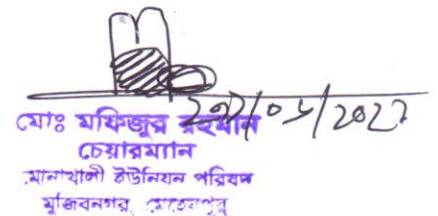 মোঃ মফিজুর রহমান
চেয়ারম্যান
মোনাখালী ইউনিয়ন পরিষদ
মুজিবনগর, মেহেরপুর